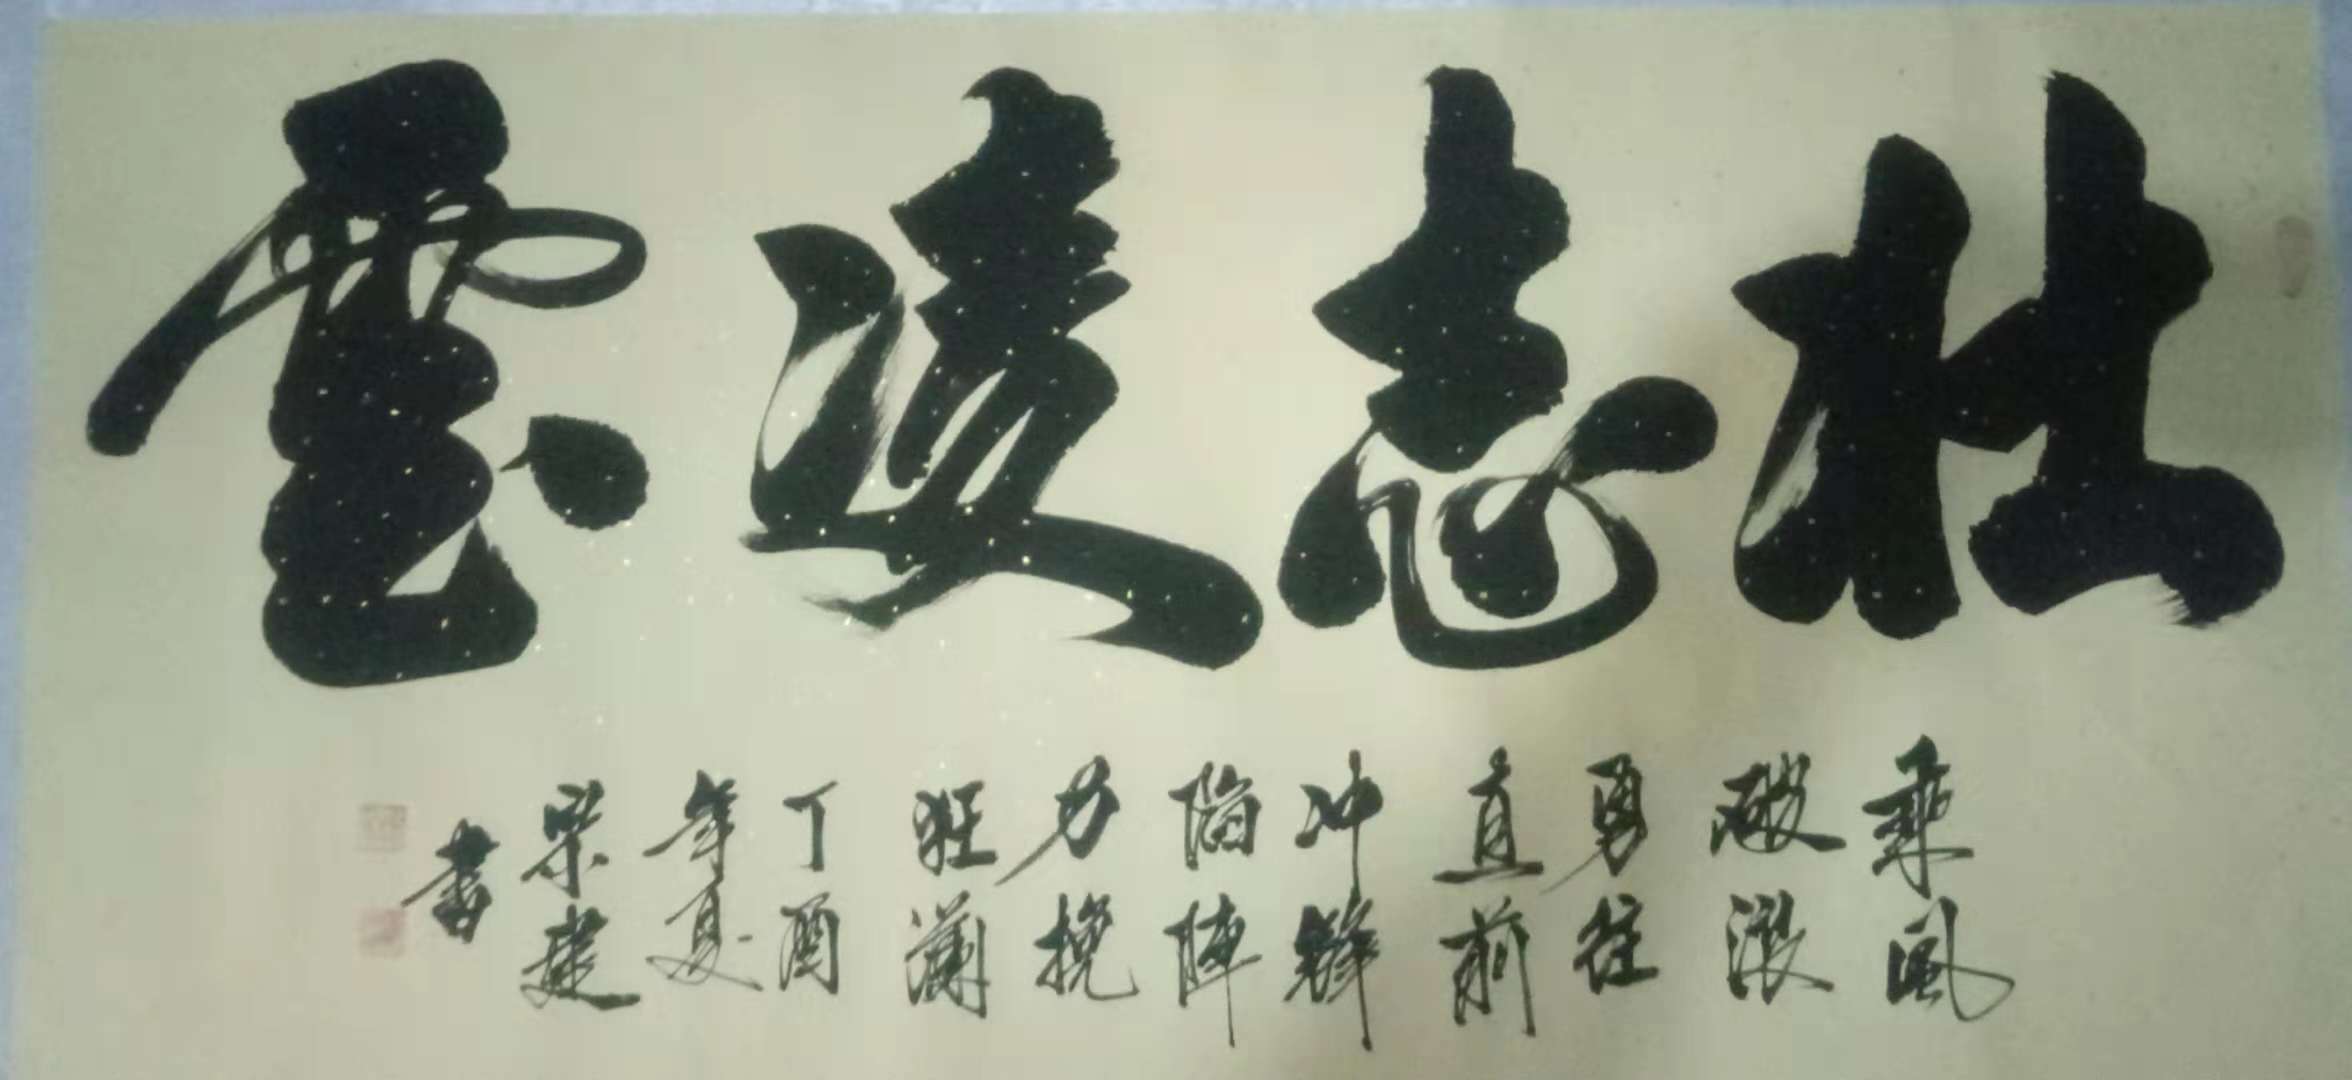 壮志凌雲
乘风
破浪
勇往
直前
冲锋
陷阵
力挽
狂澜
丁酉
年夏
荣建
书